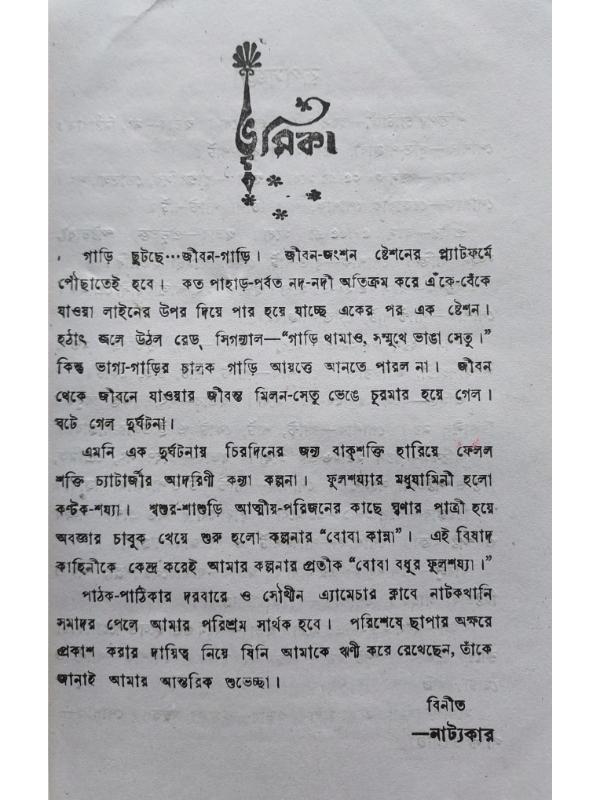 ভূমিকা
গাড়ি ছুটছে···জীবন-গাড়ি। জীবন-জংশন ষ্টেশনের প্ল্যাটফর্মে
পৌঁছাতেই হবে। কত পাহাড়-পর্বত নদ-নদী অতিক্রম করে এঁকে-বেঁকে
যাওয়া লাইনের উপর দিয়ে পার হয়ে যাচ্ছে একের পর এক ষ্টেশন।
হঠাৎ জলে উঠল রেড্ সিগন্যাল—“গাড়ি থামাও, সম্মুখে ভাঙা সেতু।”
কিন্তু ভাগ্য-গাড়ির চালক গাড়ি আয়ত্তে আনতে পারল না। জীবন
থেকে জীবনে যাওয়ার জীবন্ত মিলন-সেতু ভেঙে চুরমার হয়ে গেল।
ঘটে গেল দুর্ঘটনা।
এমনি এক দুর্ঘটনায় চিরদিনের জন্য বাক্‌শক্তি হারিয়ে ফেলল
শক্তি চ্যাটার্জীর আদরিণী কন্যা কল্পনা। ফুলশয্যার মধুযামিনী হলো
কণ্টক-শয্যা। শ্বশুর-শাশুড়ি আত্মীয়-পরিজনের কাছে ঘৃণার পাত্রী হয়ে
অবজ্ঞার চাবুক খেয়ে শুরু হলো কল্পনার “বোবা কান্না”। এই বিষাদ
কাহিনীকে কেন্দ্র করেই আমার কল্পনার প্রতীক “বোবা বধূর ফুলশয্যা।”
পাঠক-পাঠিকার দরবারে ও সৌখীন এ্যামেচার ক্লাবে নাটকখানি
সমাদর পেলে আমার পরিশ্রম সার্থক হবে। পরিশেষে ছাপার অক্ষরে
প্রকাশ করার দায়িত্ব নিয়ে যিনি আমাকে ঋণী করে রেখেছেন, তাঁকে
জানাই আমার আন্তরিক শুভেচ্ছা।
বিনীত
—নাট্যকার